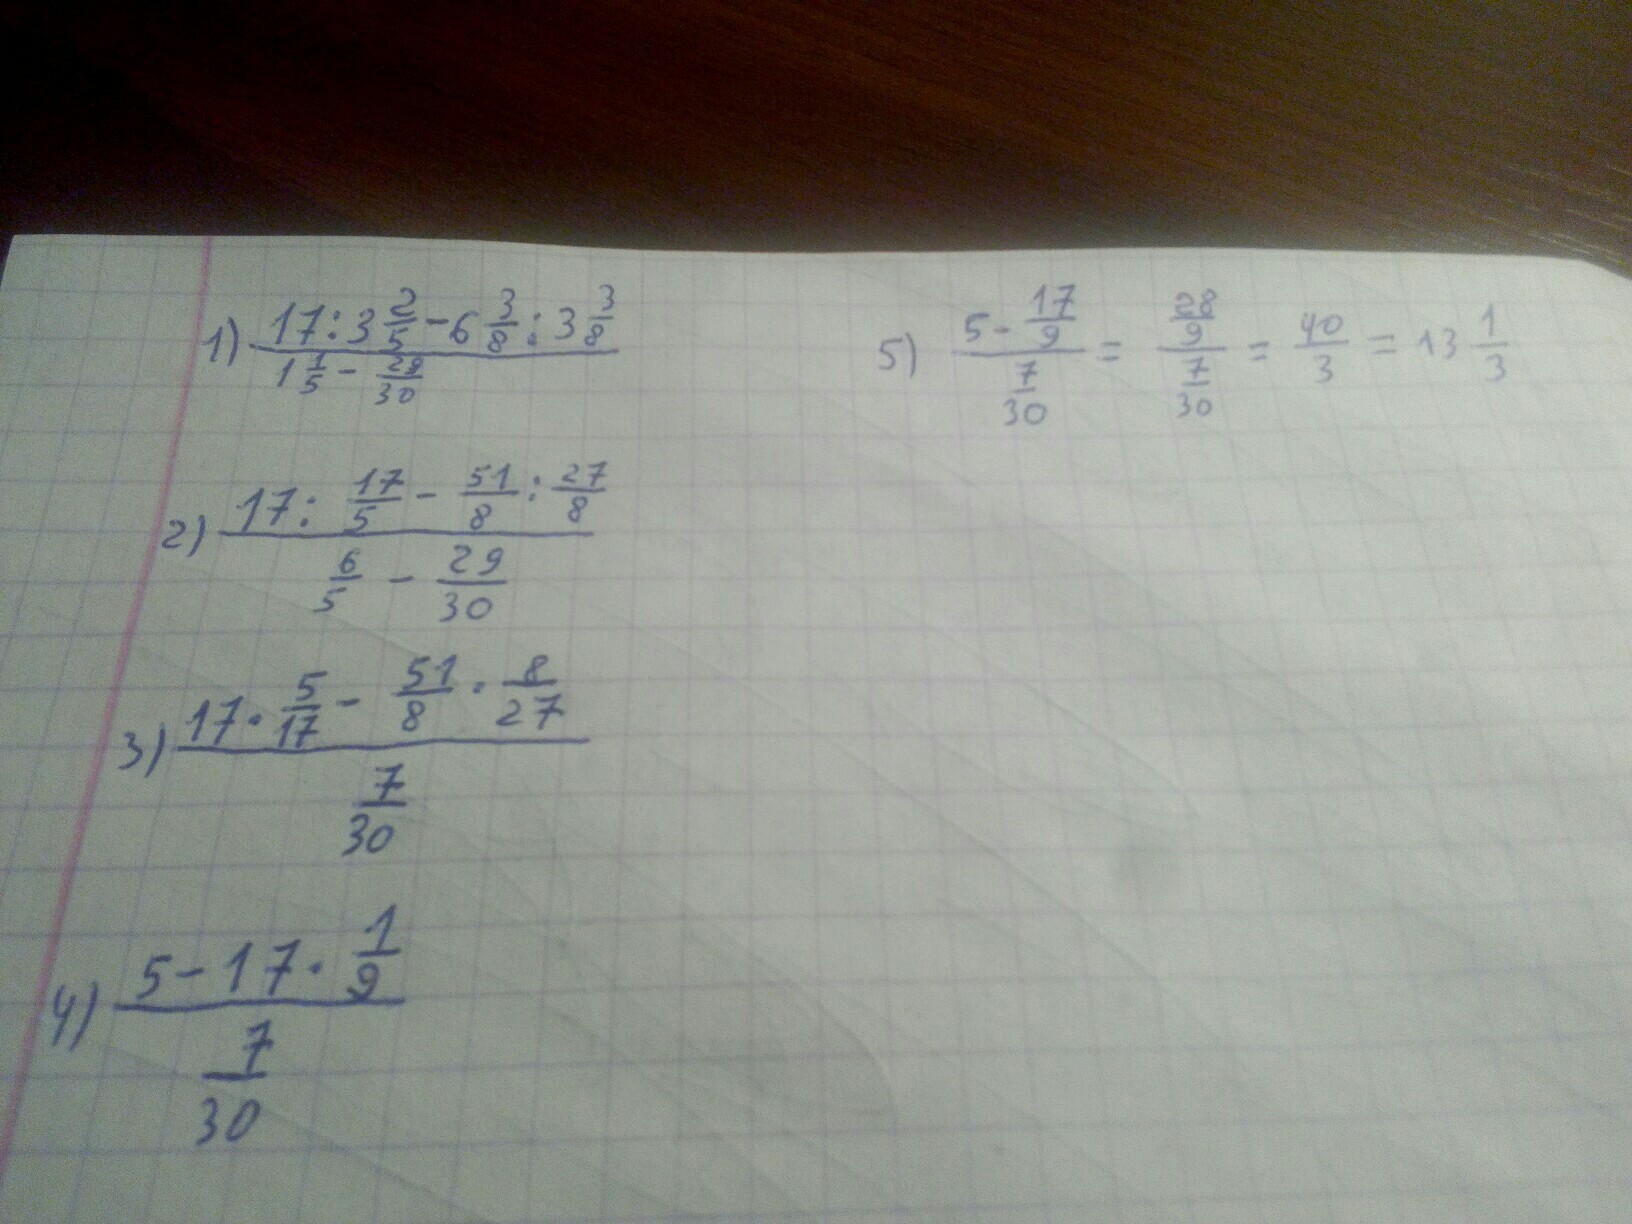 1) (17:3 2/5 - 6 3/8 : 3 3/8) / (1 1/5 - 29/30)
2) (17 : 17/5 - 51/8 : 27/8) / (6/5 - 29/30)
3) (17 · 5/17 - 51/8 · 8/27) / (7/30)
4) (5 - 17 · 1/9) / (7/30)
5) (5 - 17/9) / (7/30) = (28/9) / (7/30) = 40/3 = 13 1/3